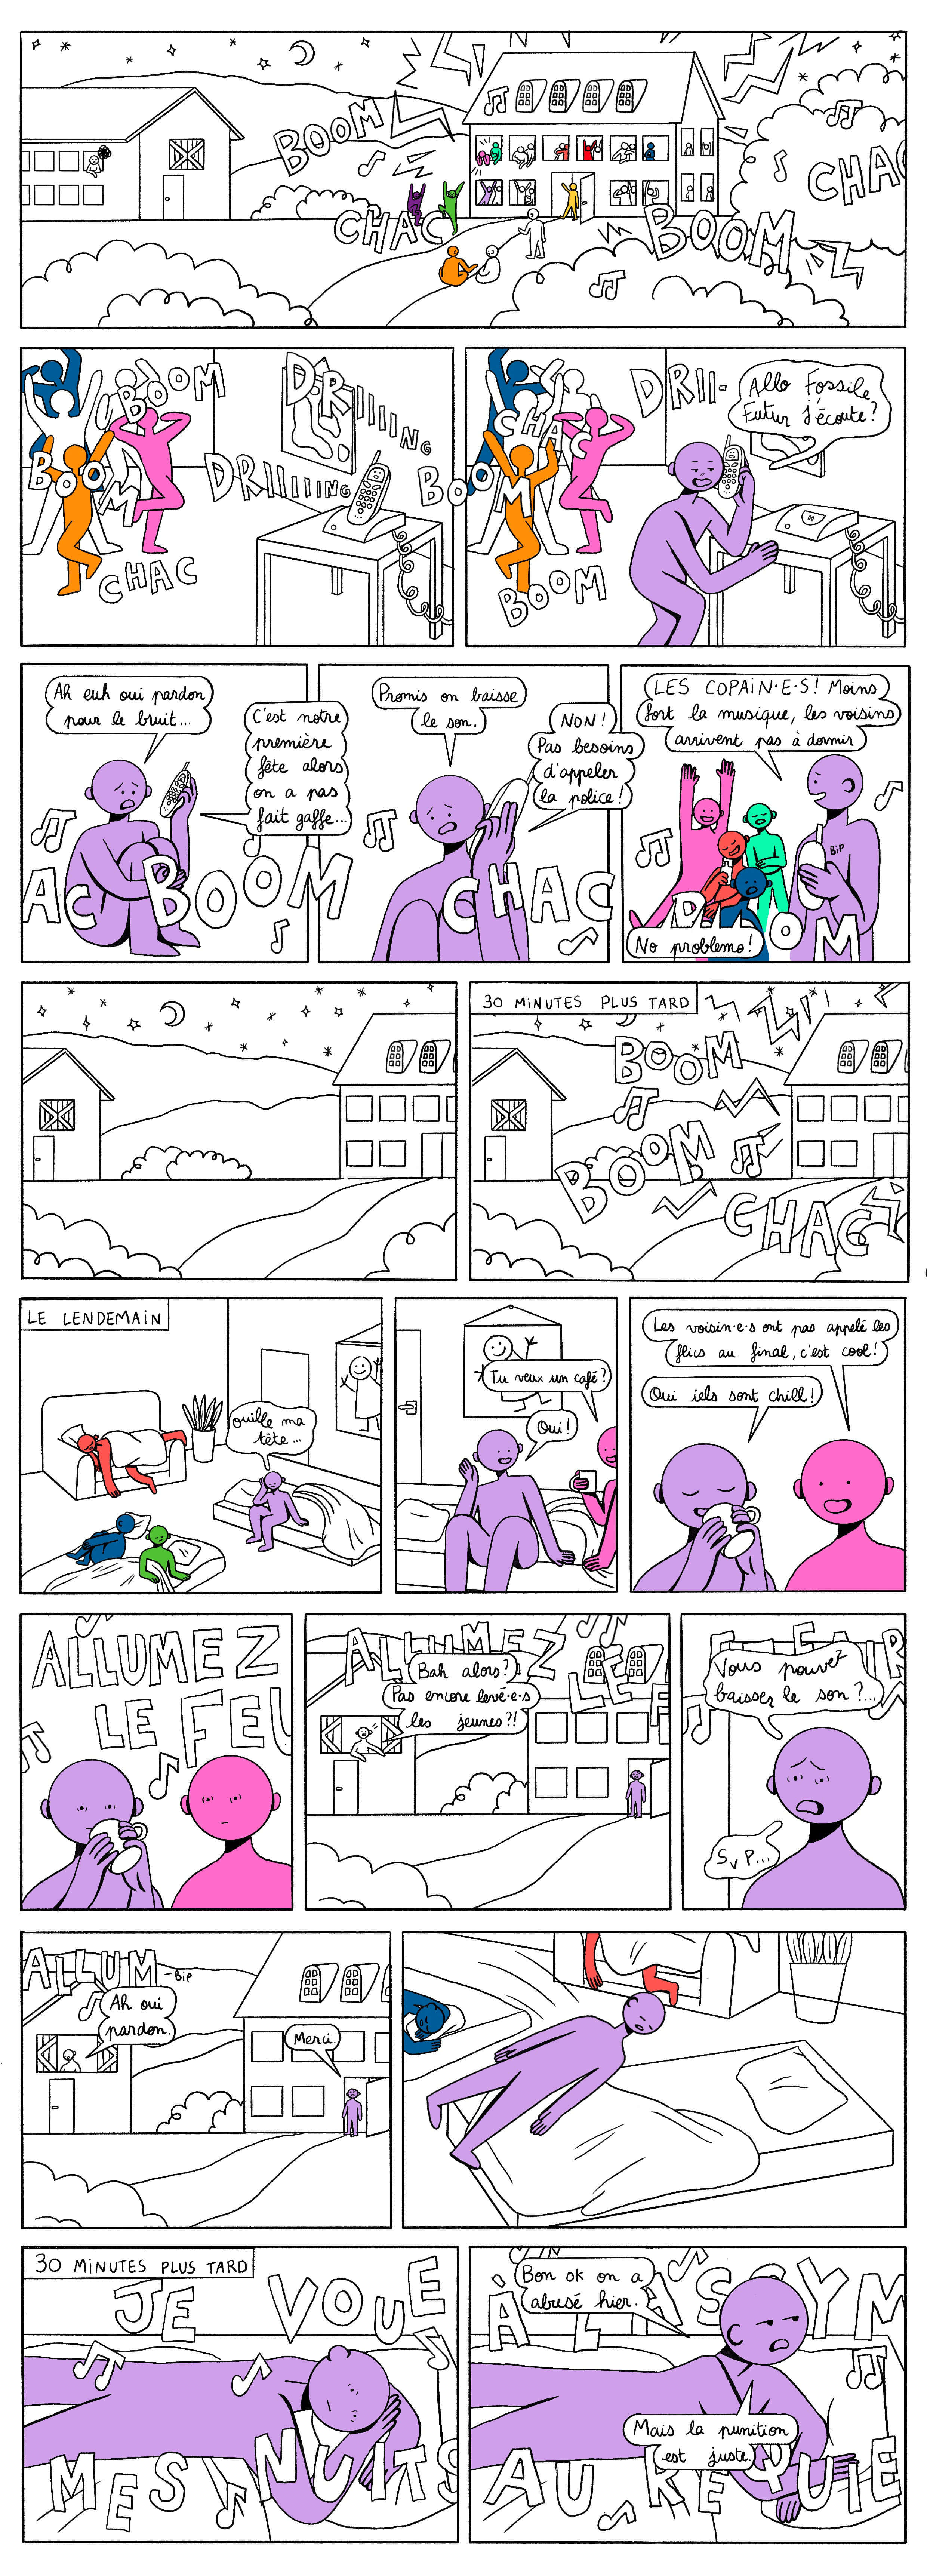 BOOM
CHAC
BOOM
CHAC
BOOM
BOOM
CHAC
DRIIIIING
DRIIIIING
BOOM
CHAC
BOOM
DRII-
Allo Fossile
Futur j'écoute?
Ah euh oui pardon
pour le bruit...
C'est notre
première
fête alors
on a pas
fait gaffe...
AC BOOM
Promis on baisse
le son.
NON!
Pas besoins
d'appeler
la police!
CHAC
LES COPAIN·E·S! Moins
fort la musique, les voisins
arrivent pas à dormir
BIP
No problemo!
30 MINUTES PLUS TARD
BOOM
BOOM
CHAC
LE LENDEMAIN
ouille ma
tête...
Tu veux un café?
Oui!
Les voisin·e·s ont pas appelé les
flics au final, c'est cool!
Oui iels sont chill!
ALLUMEZ
LE FEU
ALLUMEZ
LE F
Bah alors?
Pas encore levé·e·s
les jeunes?!
Vous pouvez
baisser le son?...
SvP...
ALLUM
-BIP
Ah oui
pardon.
Merci.
30 MINUTES PLUS TARD
JE VOUE
MES NUITS
Bon ok on a
abusé hier.
À L'ASSYM
Mais la punition
est juste.
AU REQUIE